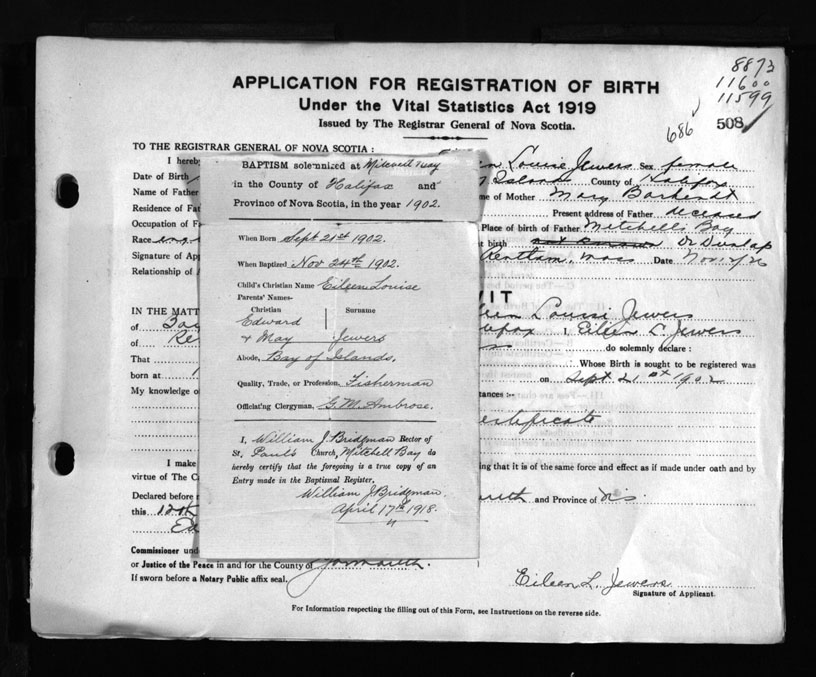 8873
11600
11599
686
508
APPLICATION FOR REGISTRATION OF BIRTH
Under the Vital Statistics Act 1919
Issued by The Registrar General of Nova Scotia.
TO THE REGISTRAR GENERAL OF NOVA SCOTIA :
I hereby
Louise Jewers Sex female
Date of Birth
Island County of Halifax
Name of Father
me of Mother Mary
Residence of Fat
Present address of Father deceased
Occupation of F
Place of birth of Father Mitchells Bay
Race
t birth Dr Dunlap
Signature of App
Wrentham, Mass Date Nov 12/26
Relationship of
BAPTISM solemnized at Mitchell Bay
in the County of Halifax and
Province of Nova Scotia, in the year 1902.
When Born Sept 21st 1902.
When Baptized Nov 24th 1902.
Child's Christian Name Eileen Louise
Parents' Names-
Christian Surname
Edward
& May Jewers
Abode, Bay of Islands,
Quality, Trade, or Profession, Fisherman
Officiat'ng Clergyman, G. M. Ambrose.
I, William J. Bridgman Rector of
St. Pauls Church, Mitchell Bay do
hereby certify that the foregoing is a true copy of an
Entry made in the Baptismal Register,
William J Bridgman.
April 17th 1918.
"
VIT
IN THE MATT
een Louise Jewers
of
lifax I, Eileen L. Jewers
of
do solemnly declare :
That
Whose Birth is sought to be registered was
born at
on Sept 21st 1902
My knowledge o
tances :-
ertificate
I make
ing that it is of the same force and effect as if made under oath and by
virtue of The C
Declared before
outh and Province of N.S.
this 12th
Commissioner und
or Justice of the Peace in and for the County of Yarmouth.
If sworn before a Notary Public affix seal,
Eileen L. Jewers
Signature of Applicant.
For Information respecting the filling out of this Form, see Instructions on the reverse side.